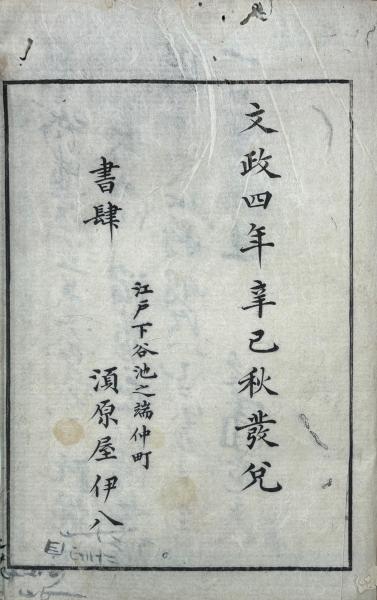 文政四年辛巳秋發兌
書肆
江戸下谷池之端仲町
須原屋伊八